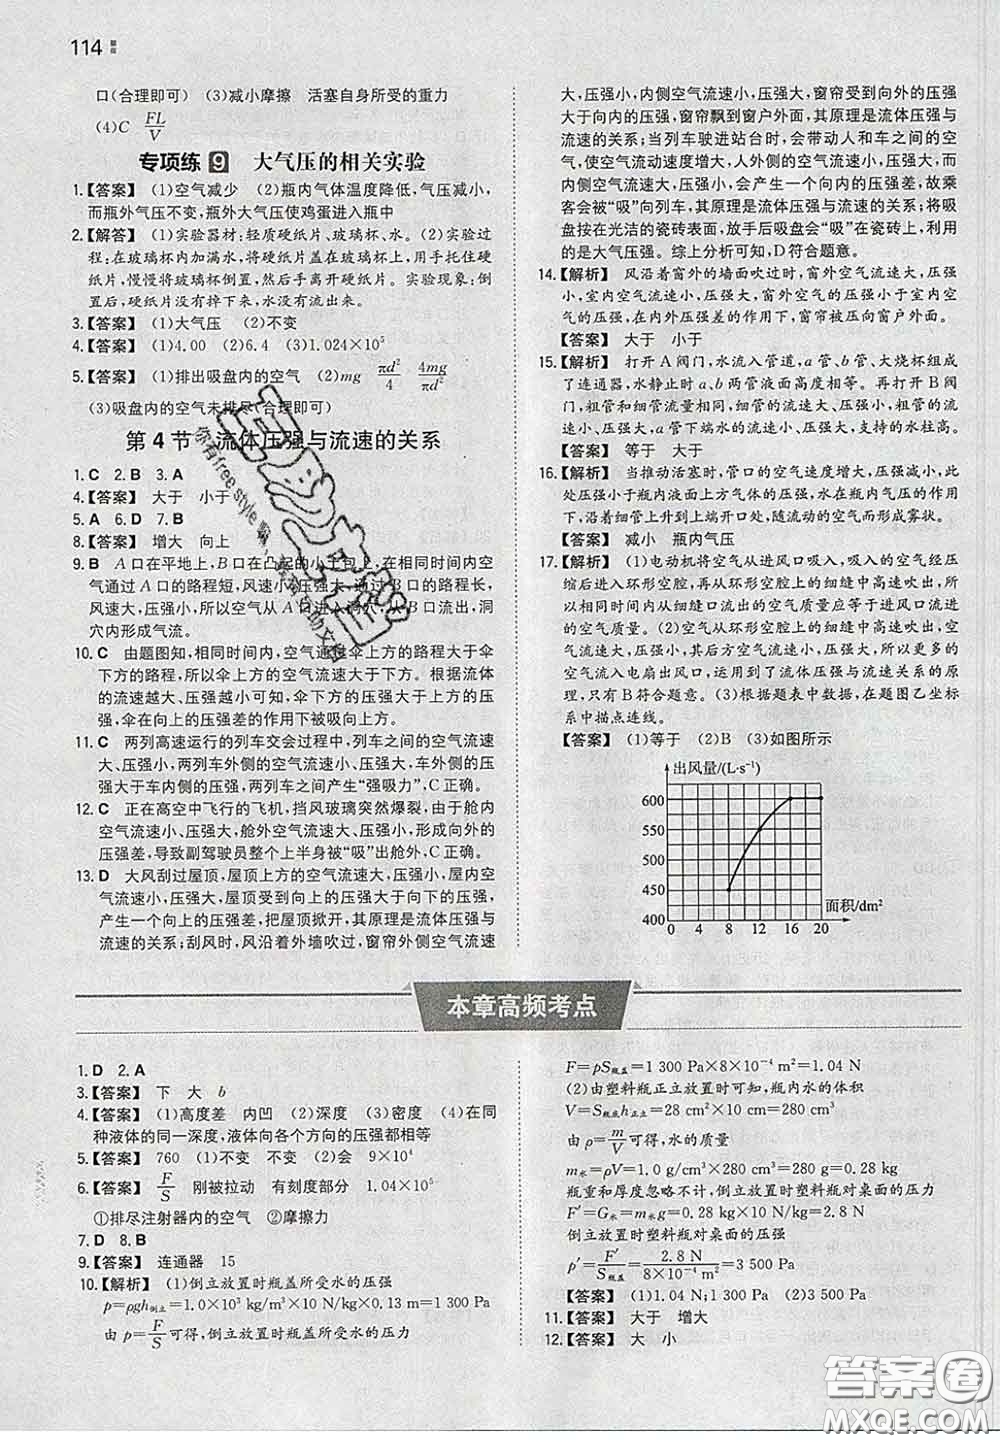 114
口(合理即可)　(3)减小摩擦　活塞自身所受的重力
(4)C　FL/V
专项练 9　大气压的相关实验
1.【答案】　(1)空气减少　(2)瓶内气体温度降低,气压减小,
而瓶外气压不变,瓶外大气压使鸡蛋进入瓶中
2.【解答】　(1)实验器材:轻质硬纸片、玻璃杯、水。(2)实验过
程:在玻璃杯内加满水,将硬纸片盖在玻璃杯上,用手托住硬
纸片,慢慢将玻璃杯倒置,然后手离开硬纸片。实验现象:倒
置后,硬纸片没有掉下来,水没有流出来。
3.【答案】　(1)大气压　(2)不变
4.【答案】　(1)4.00　(2)6.4　(3)1.024×10⁵
5.【答案】　(1)排出吸盘内的空气　(2)mg　πd²/4　4mg/πd²
(3)吸盘内的空气未排尽(合理即可)
第 4 节　流体压强与流速的关系
1. C　2. B　3. A
4.【答案】　大于　小于
5. A　6. D　7. B
8.【答案】　增大　向上
9. B　A 口在平地上,B 口在凸的小土包上,在相同时间内空
气通过 A 口的路程短,风速小,压强大,通过 B 口的路程长,
风速大,压强小,所以空气从 A 口进入洞穴,从 B 口流出,洞
穴内形成气流。
10. C　由题图知,相同时间内,空气通过伞上方的路程大于伞
下方的路程,所以伞上方的空气流速大于下方。根据流体
的流速越大、压强越小可知,伞下方的压强大于上方的压
强,伞在向上的压强差的作用下被吸向上方。
11. C　两列高速运行的列车交会过程中,列车之间的空气流速
大、压强小,两列车外侧的空气流速小、压强大,车外侧的压
强大于内侧的压强,两列车之间产生“强吸力”,C 正确。
12. C　正在高空中飞行的飞机,挡风玻璃突然爆裂,由于舱内
空气流速小、压强大,舱外空气流速大、压强小,形成向外的
压强差,导致副驾驶员整个上半身被“吸”出舱外,C 正确。
13. D　大风刮过屋顶,屋顶上方的空气流速大,压强小,屋内空
气流速小,压强大,屋顶受到向上的压强大于向下的压强,
产生一个向上的压强差,把屋顶掀开,其原理是流体压强与
流速的关系;刮风时,风沿着外墙吹过,窗帘外侧空气流速
大,压强小,内侧空气流速小、压强大,窗帘受到向外的压强
大于向内的压强,窗帘飘到窗户外面,其原理是流体压强与
流速的关系;当列车驶进站台时,会带动人和车之间的空气
流动,使空气流动速度增大,人外侧空气流动速度慢,根据流
体压强与流速的关系可知,会产生一个向内的压强差,故乘
客会被“吸”向列车,其原理是流体压强与流速的关系;将吸
盘按在光洁的瓷砖上,放手后吸盘会“吸”在瓷砖上,利用
的是大气压强。综上分析可知,D 符合题意。
14.【解析】　风沿着窗外的墙面吹过时,窗外空气流速大,压强
小,室内空气流速小,压强大,窗外空气的压强小于室内空气
的压强,在内外压强差的作用下,窗帘被压向窗户外面。
【答案】　大于　小于
15.【解析】　打开 A 阀门,水流入管道,a 管、b 管、大烧杯组成
了连通器,水静止时 a、b 两管液面高度相等。再打开 B 阀
门,粗管和细管都有水流过,细管的流速大、压强小,粗管的
流速小、压强大,a 管下端水的流速小于 b 管下端水的流速。
【答案】　等于　大于
16.【解析】　当推动活塞时,管口的空气速度增大,压强减小,此
处压强小于瓶内液面上方气体的压强,水在瓶内气压的作用
下,沿着细管上升到上端开口处,随流动的空气而形成雾状。
【答案】　减小　瓶内气压
17.【解析】　(1)电动机将空气从进风口吸入,吸入的空气经压
缩后进入环形空腔,再从环形空腔上的细缝中高速吹出,所
以从细缝口流出的空气质量应等于进风口流进的空气质
量。(2)空气从环形空腔上的细缝中高速吹出,其前方空气
流速大、压强小,其后方空气流速小、压强大,所以更多的空
气流入电扇出风口,运用到了流体压强与流速关系的原
理,只有 B 符合题意。(3)根据题表中数据,在题图乙坐标
系中描点连线。
【答案】　(1)等于　(2)B　(3)如图所示
出风量/(L·s⁻¹)
600
550
500
450
400
0　4　8　12　16　20　面积/dm²
本章高频考点
1. D　2. A
3.【答案】　下　大　b
4.【答案】　(1)高度差　内凹　(2)深度　(3)密度　(4)在同
种液体的同一深度,液体向各个方向的压强都相等
5.【答案】　760　(1)不变　不变　(2)会　9×10⁴
6.【答案】　F/S　刚被拉动　有刻度部分　1.04×10⁵
①排尽注射器内的空气　②摩擦力
7. D　8. B
9.【答案】　连通器　15
10.【解析】　(1)倒立放置时瓶盖所受水的压强
p=ρgh倒立=1.0×10³ kg/m³×10 N/kg×0.13 m=1 300 Pa
由 p=F/S可得,倒立放置时瓶盖所受水的压力
F=pS瓶盖=1 300 Pa×8×10⁻⁴ m²=1.04 N
(2)由塑料瓶正立放置时可知,瓶内水的体积
V=S瓶底h正立=28 cm²×10 cm=280 cm³
由 ρ=m/V可得,水的质量
m水=ρV=1.0 g/cm³×280 cm³=280 g=0.28 kg
瓶重和厚度忽略不计,倒立放置时塑料瓶对桌面的压力
F′=G水=m水g=0.28 kg×10 N/kg=2.8 N
倒立放置时塑料瓶对桌面的压强
p′=F′/S瓶盖=2.8 N/8×10⁻⁴ m²=3 500 Pa
【答案】　(1)1.04 N;1 300 Pa　(2)3 500 Pa
11.【答案】　大于　增大
12.【答案】　大　小
答案圈
MXQE.COM